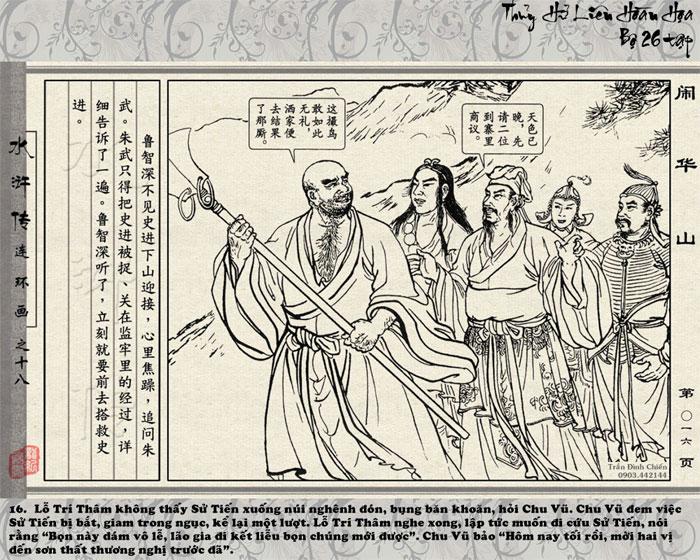 Thủy Hử Liên Hoàn Họa
Bộ 26 tập
闹华山
第〇一六页
水浒传连环画之十八
鲁智深不见史进下山迎接，心里焦躁，追问朱
武。朱武只得把史进被捉、关在监牢里的经过，详
细告诉了一遍。鲁智深听了，立刻就要前去搭救史
进。
天色已
晚，先
请二位
到寨里
商议。
这撮鸟
敢如此
无礼，
洒家便
去结果
了那厮。
Trần Đình Chiến
0903.442144
16. Lỗ Trí Thâm không thấy Sử Tiến xuống núi nghênh đón, bụng băn khoăn, hỏi Chu Vũ. Chu Vũ đem việc
Sử Tiến bị bắt, giam trong ngục, kể lại một lượt. Lỗ Trí Thâm nghe xong, lập tức muốn đi cứu Sử Tiến, nói
rằng “Bọn này dám vô lễ, lão gia đi kết liễu bọn chúng mới được”. Chu Vũ bảo “Hôm nay tối rồi, mời hai vị
đến sơn thất thương nghị trước đã”.